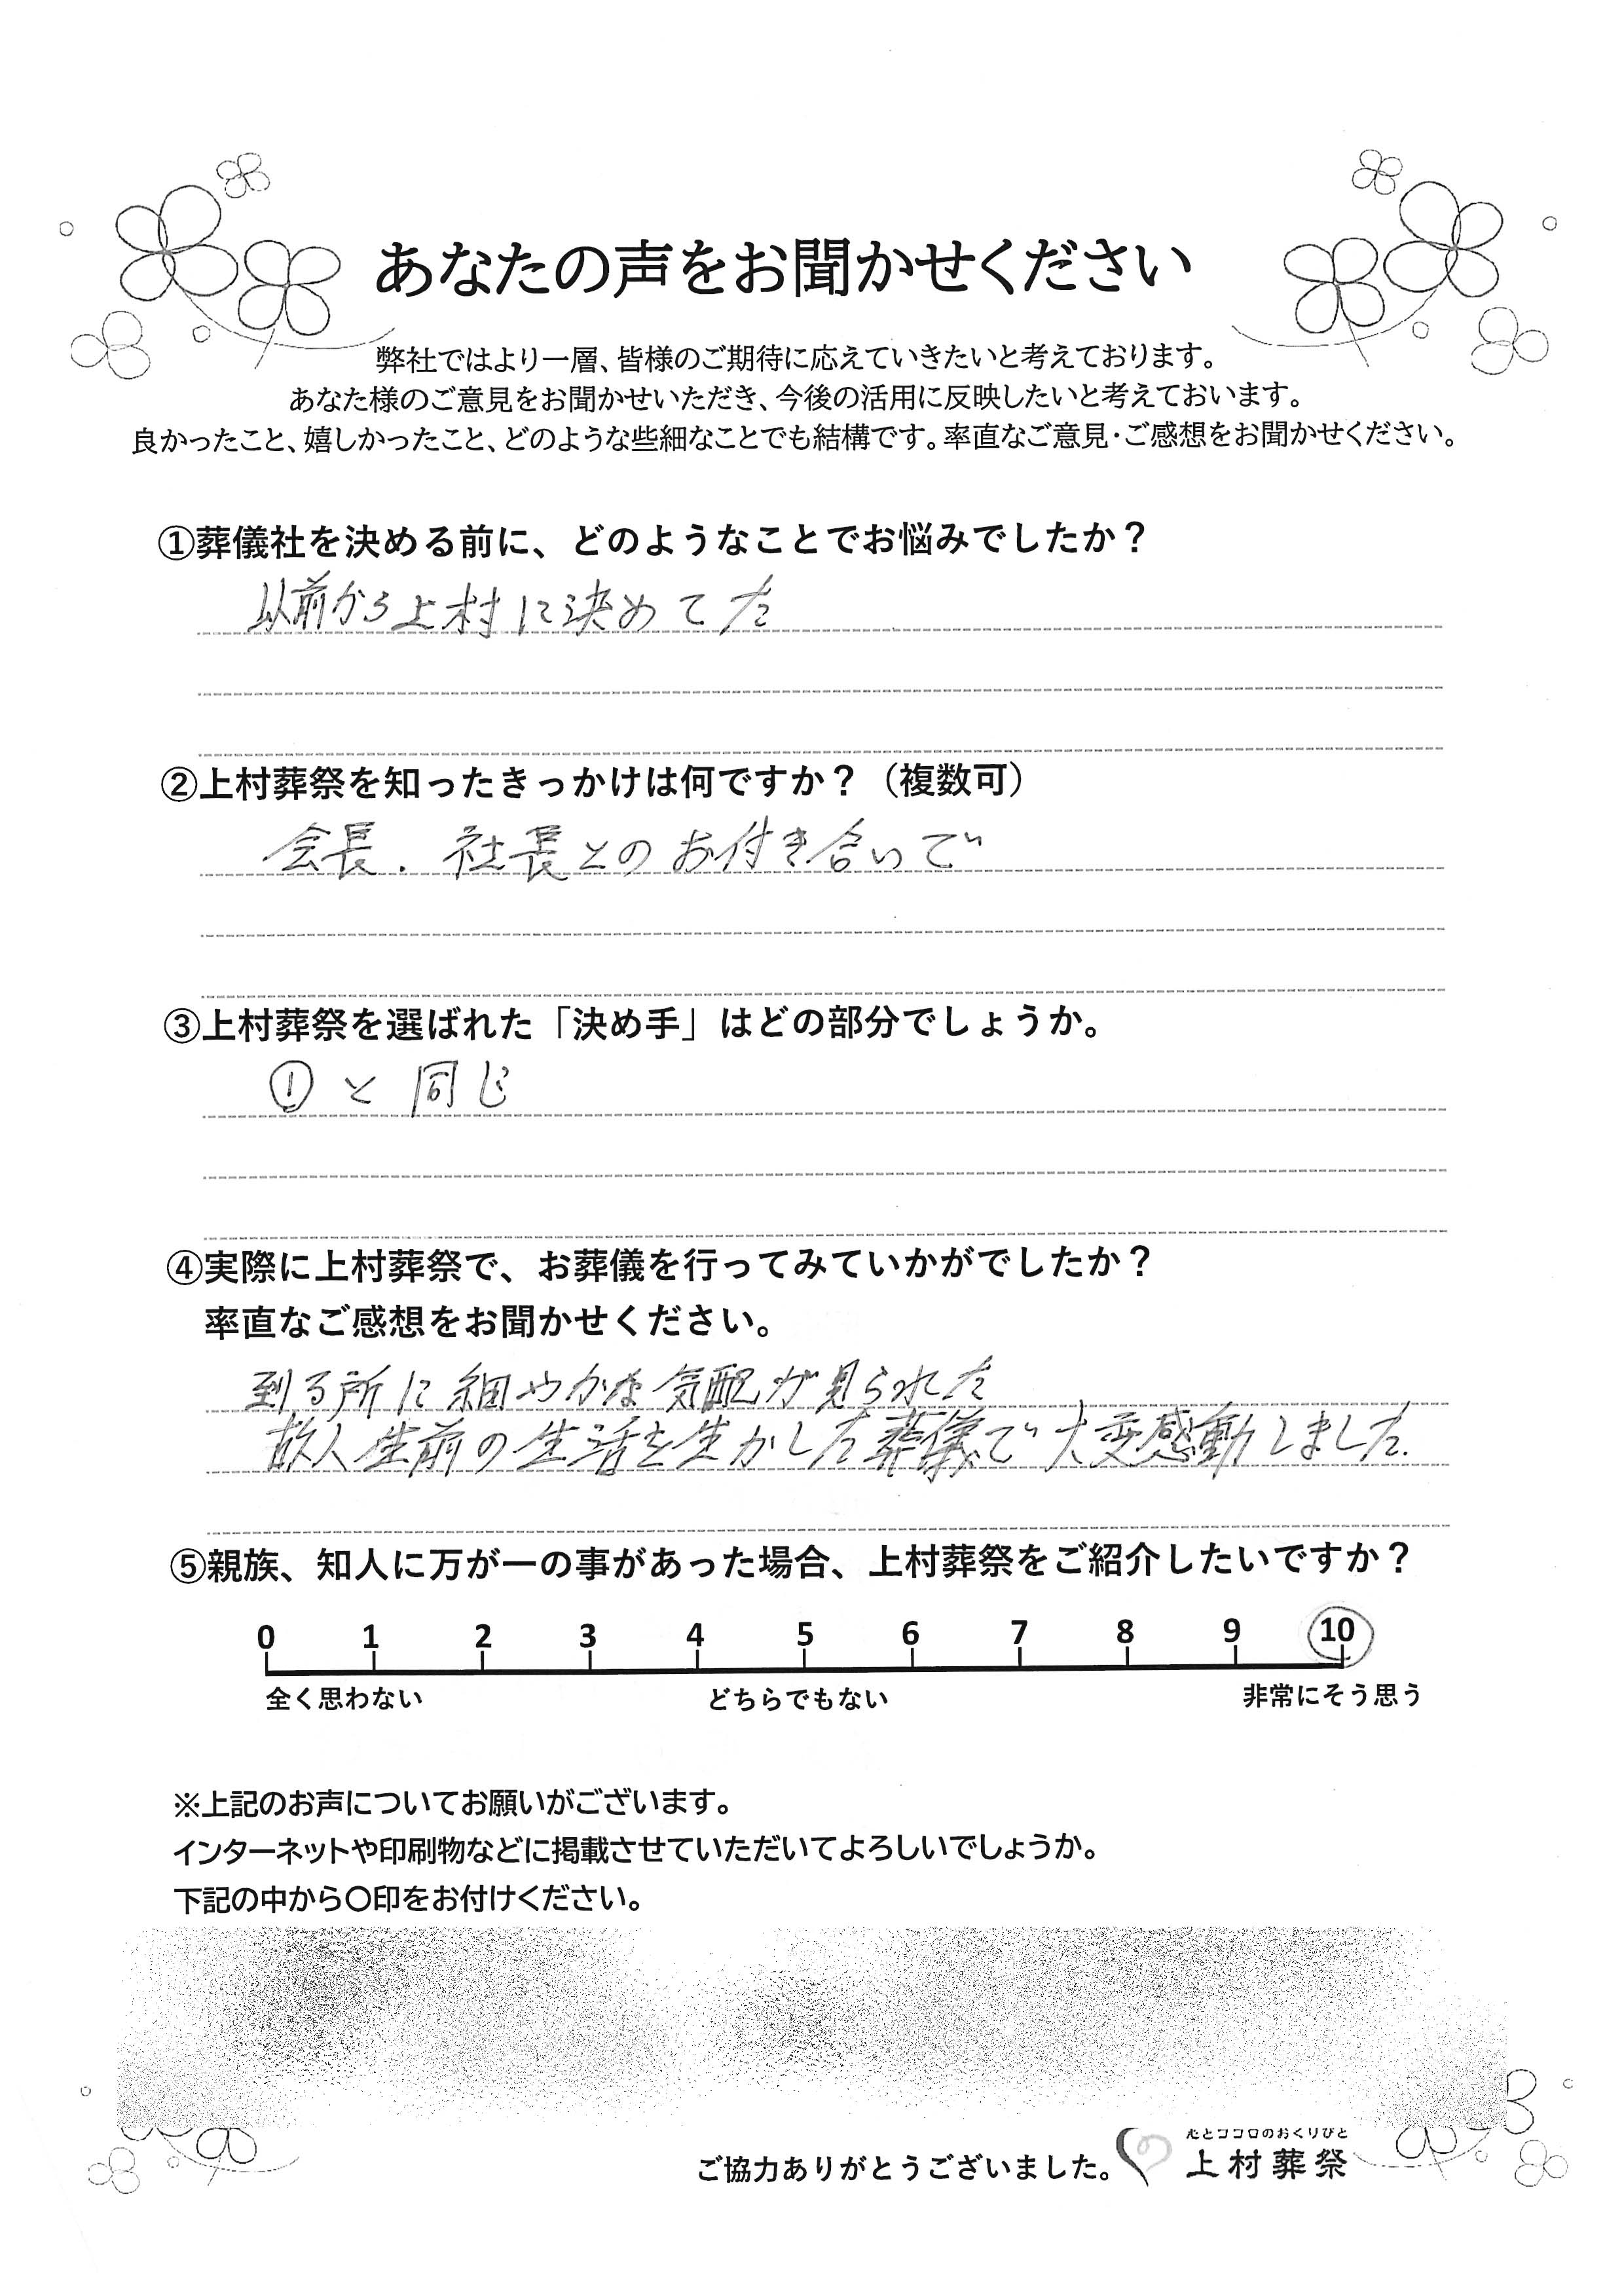 あなたの声をお聞かせください
弊社ではより一層、皆様のご期待に応えていきたいと考えております。
あなた様のご意見をお聞かせいただき、今後の活用に反映したいと考えておいます。
良かったこと、嬉しかったこと、どのような些細なことでも結構です。率直なご意見・ご感想をお聞かせください。
①葬儀社を決める前に、どのようなことでお悩みでしたか？
以前から上村に決めてた
②上村葬祭を知ったきっかけは何ですか？（複数可）
会長．社長とのお付き合いで
③上村葬祭を選ばれた「決め手」はどの部分でしょうか。
①と同じ
④実際に上村葬祭で、お葬儀を行ってみていかがでしたか？
率直なご感想をお聞かせください。
到る所に細やかな気配が見られた
故人生前の生活を生かした葬儀で大変感動しました.
⑤親族、知人に万が一の事があった場合、上村葬祭をご紹介したいですか？
0 1 2 3 4 5 6 7 8 9 10
全く思わない どちらでもない 非常にそう思う
※上記のお声についてお願いがございます。
インターネットや印刷物などに掲載させていただいてよろしいでしょうか。
下記の中から〇印をお付けください。
ご協力ありがとうございました。
心とココロのおくりびと
上村葬祭